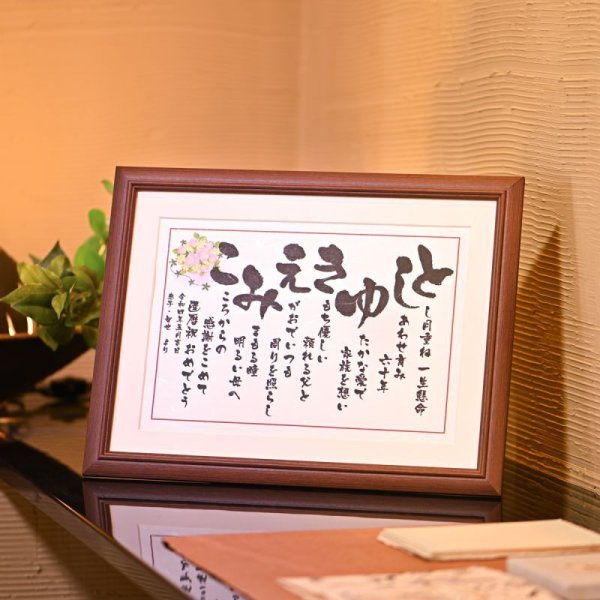 としゆきえみこ
し月重ね 一生懸命
あわせ育み
六十年
たかな愛で
家族を想い
もち優しい
頼れる父と
がおでいつも
周りを照らし
まもる瞳
明るい母へ
ころからの
感謝をこめて
還暦祝おめでとう
令和四年五月吉日
より